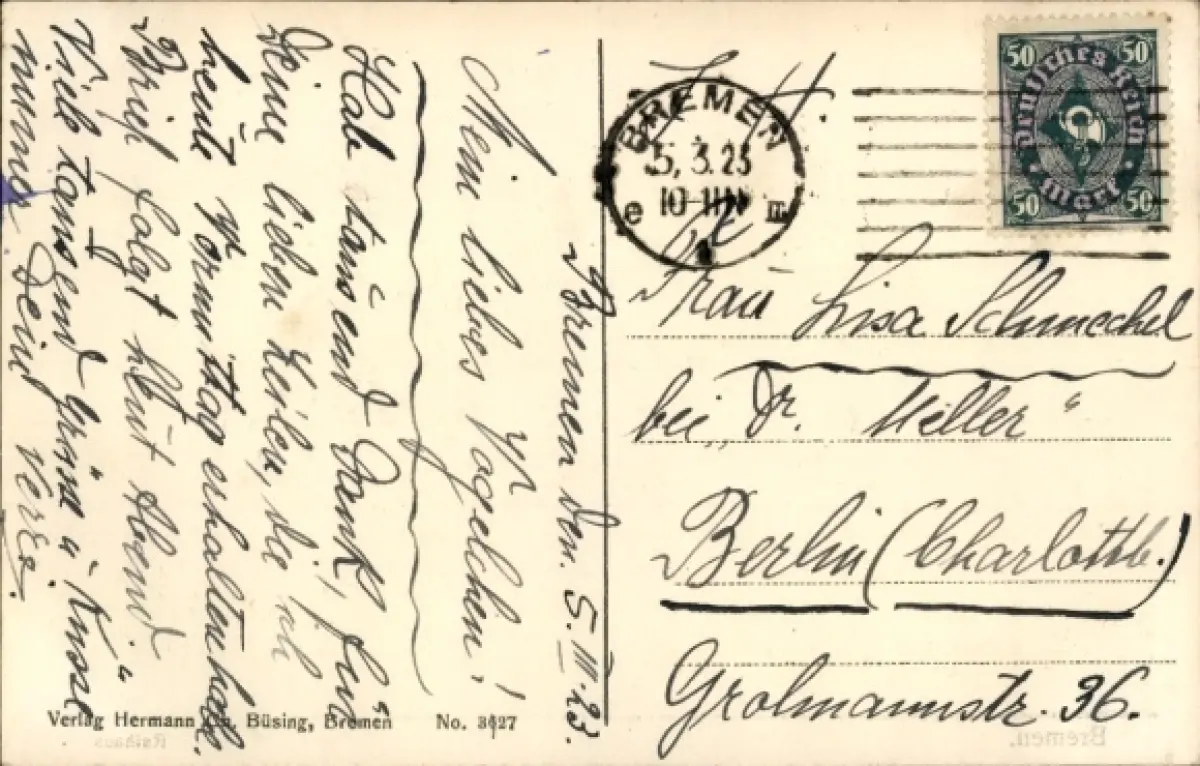 Bremen den 5.III.23.
Mein liebes Vögelchen!
Hab tausend Dank für
Deine lieben Zeilen, die ich
heute Vormittag erhalten habe.
Brief folgt heut Abend
Viele tausend Grüsse u Küsse
Dein
BREMEN
5.3.23
10-11 N
e m
50 50
Deutsches Reich
Mark
50 50
Frau Lisa Schmechel
bei „Dr. Miller“
Berlin (Charlottb.)
Grolmannstr. 36.
Verlag Hermann Büsing, Bremen No. 3427
Bremen.
Rathaus